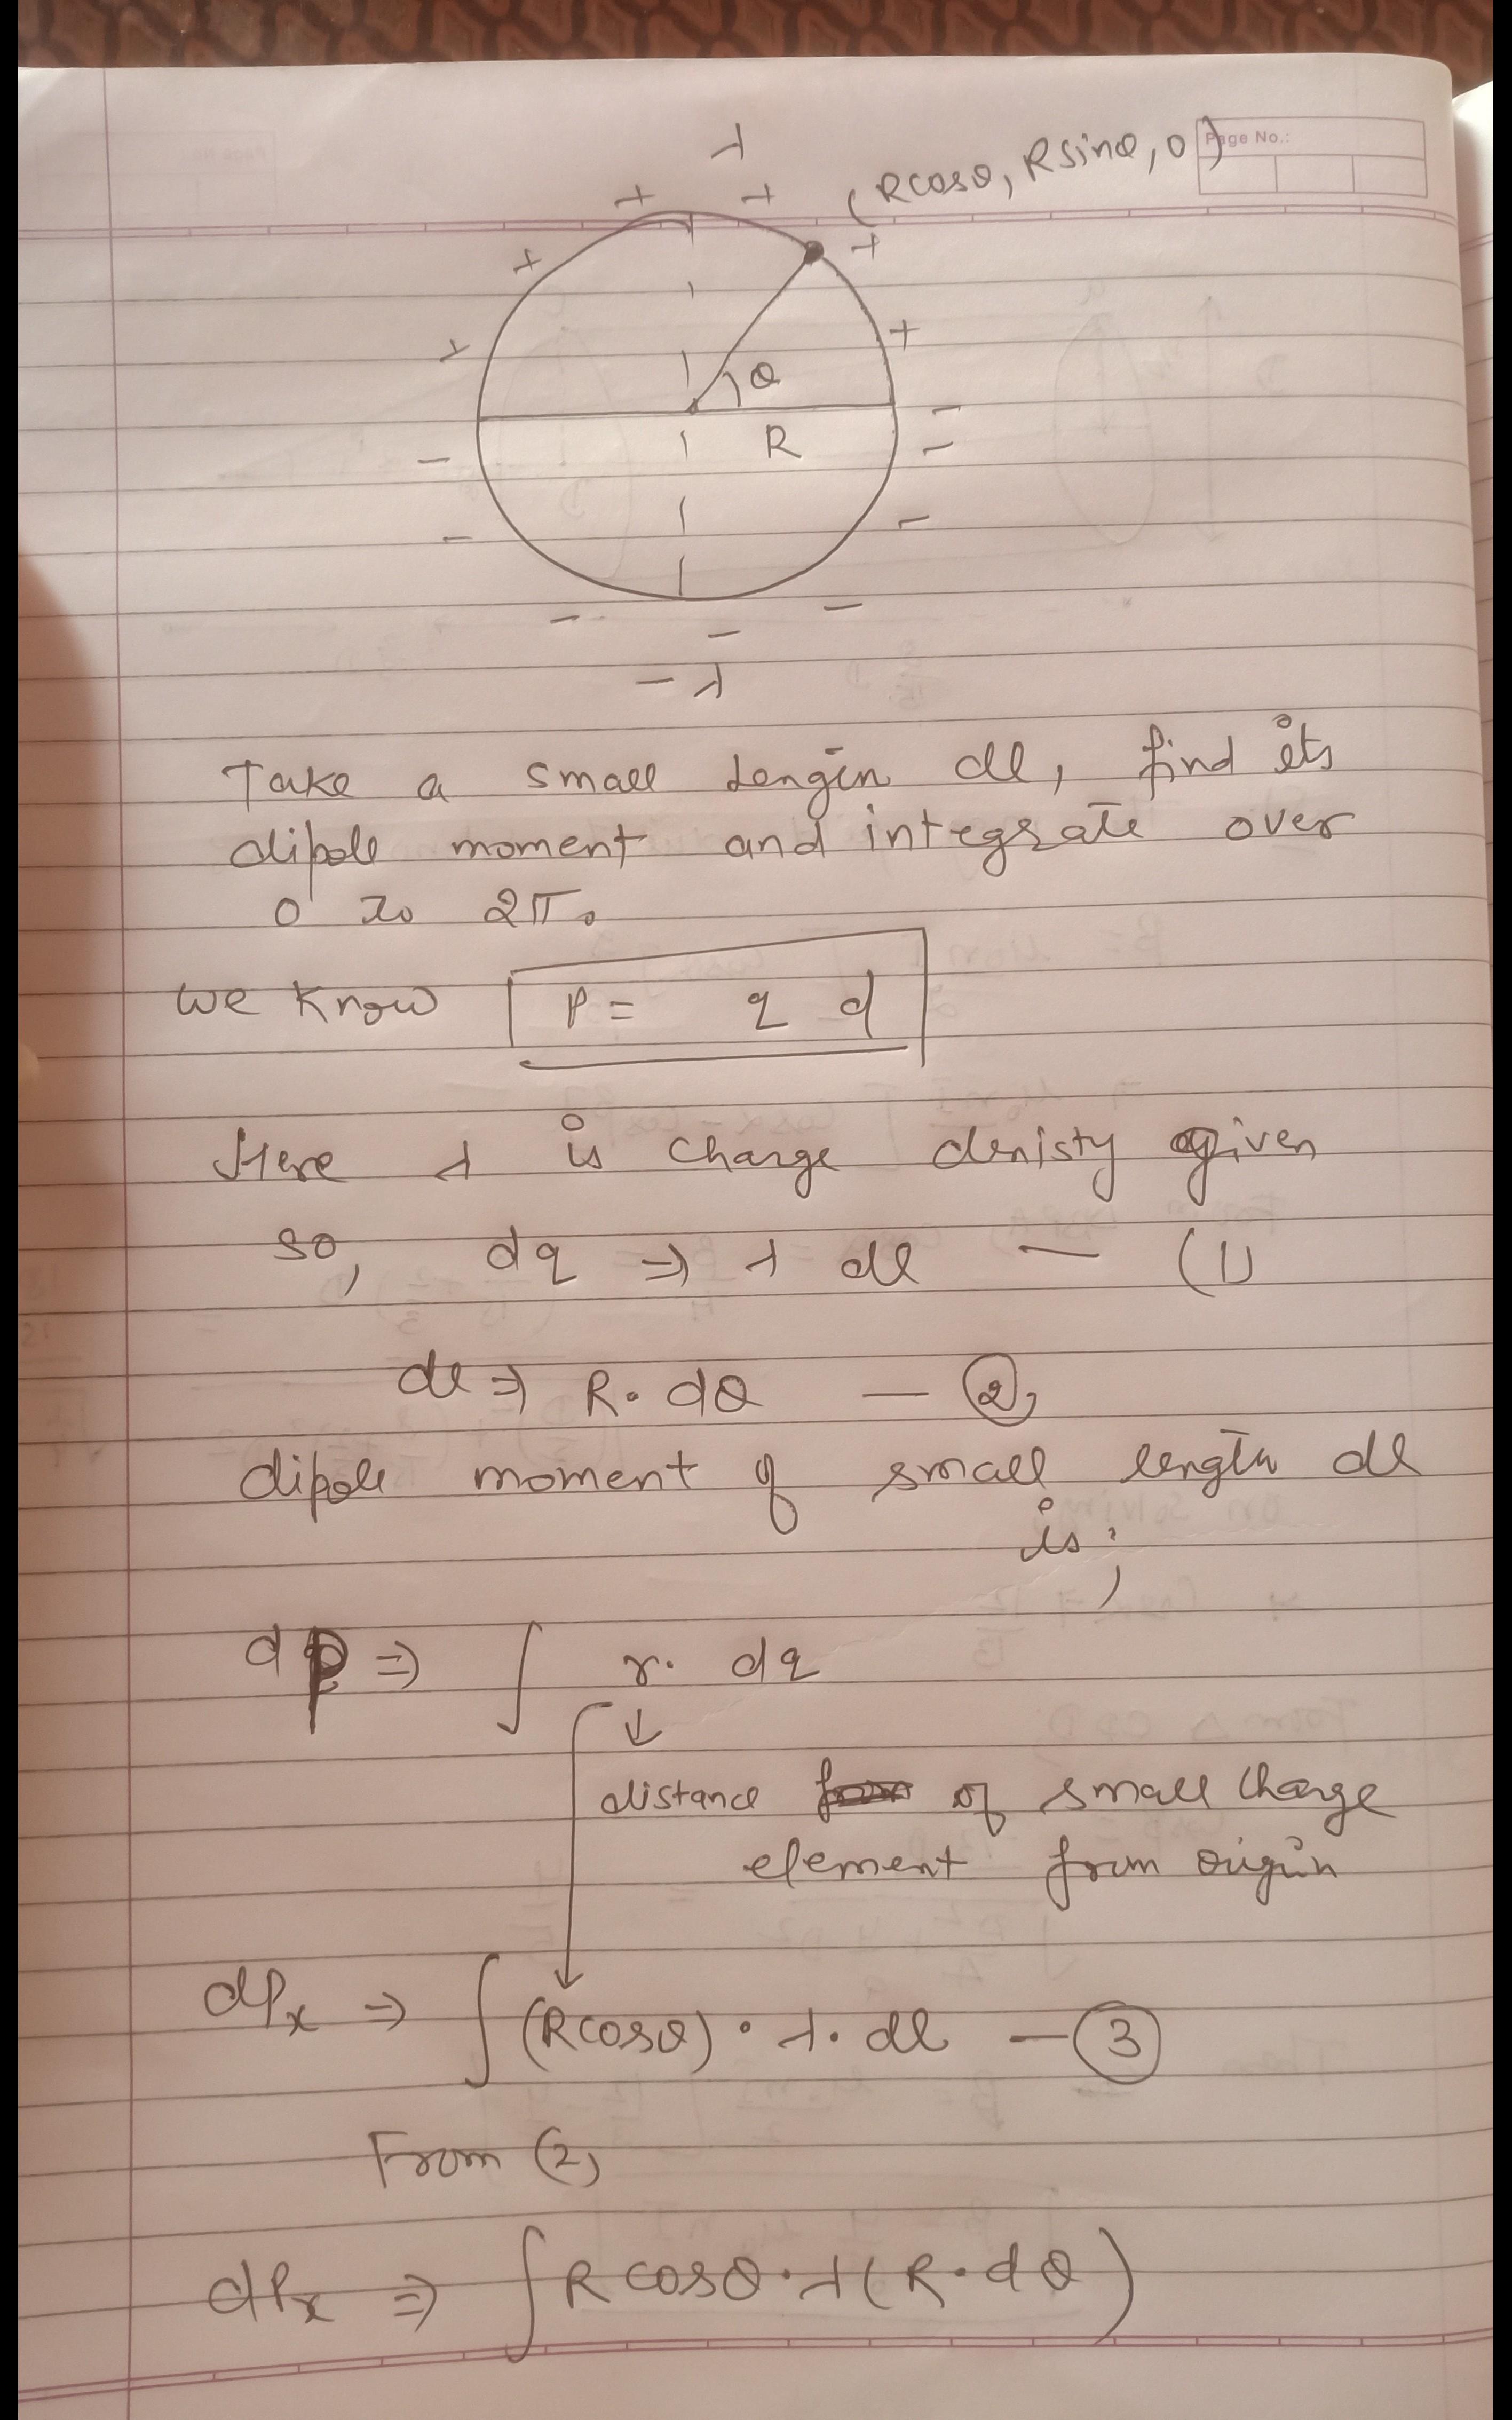 λ
(Rcosθ, Rsinθ, 0)
Page No.:
+ + + + + +
θ
R
- - - - - - - -
-λ
Take a small Length dl, find its
dipole moment and integrate over
0 to 2π.
we know P = q d
Here λ is charge denisty given
so, dq ⇒ λ dl — (1)
dl ⇒ R. dθ — (2)
dipole moment of small length dl
is;
dp ⇒ ∫ r. dq
↓
distance of small charge
element from origin
dPx ⇒ ∫ (Rcosθ) · λ. dl — (3)
From (2)
dPx ⇒ ∫ R cosθ · λ (R. dθ)